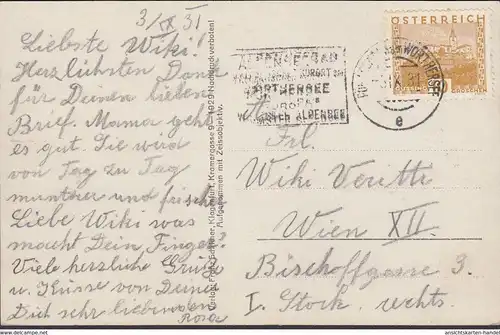 3/X 31
Liebste Wiki!
Herzlichsten Dank
für Deinen lieben
Brief. Mama geht
es gut. Sie wird
von Tag zu Tag
munterer und frischer
Liebe Wiki was
macht Dein Finger?
Viele herzliche Grüße
u. Küsse von Deiner
Dich sehr liebenden
Rosa
Klagenfurt, Kramergasse
1929 Nachdruck verboten!
Aufgenommen mit Zeissobjektiv.
WÖRTHERSEE
ALPENSEE
e
ÖSTERREICH
Frl.
Wiki
Wien XII.
Bischoffgasse 3.
I. Stock. rechts.
hipstamp.com